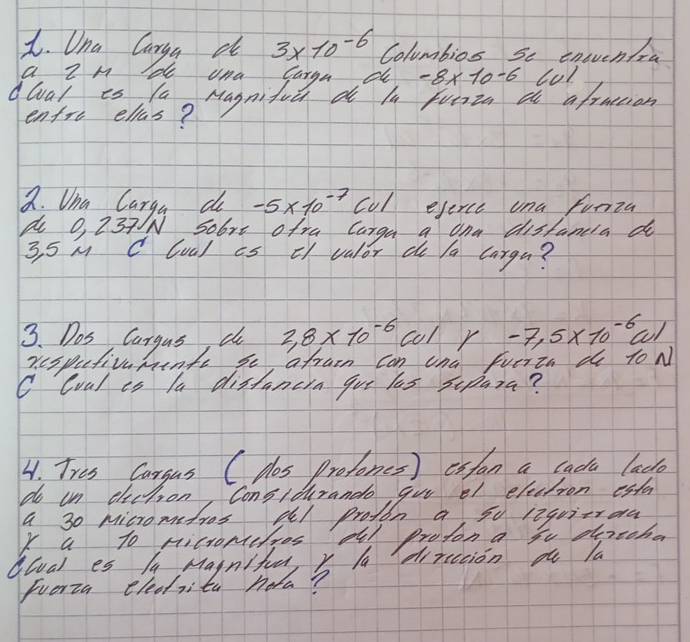 1. Una Carga de 3x10⁻⁶ Columbios se encuentra
a 2 M de una Carga de -8x10-6 Cul
¿Cual es la Magnitud de la fuerza de atraccion
entre ellas?
2. Una Carga de -5x10⁻⁷ Cul ejerce una fuerza
de 0,237N sobre otra Carga a una distancia de
3,5 M ¿ Cual es el valor de la carga?
3. Dos Cargas de 2,8x10⁻⁶ Cul y -7,5x10⁻⁶ Cul
respectivamente se atraen con una fuerza de 10N
¿ Cual es la distancia que las separa?
4. Tres Cargas (dos protones) estan a cada lado
de un electron, Considerando que el electron esta
a 30 micrometros del proton a su izquierda
y a 10 micrometros del proton a su derecha
¿Cual es la Magnitud, y la dirección de la
fuerza electrica neta?